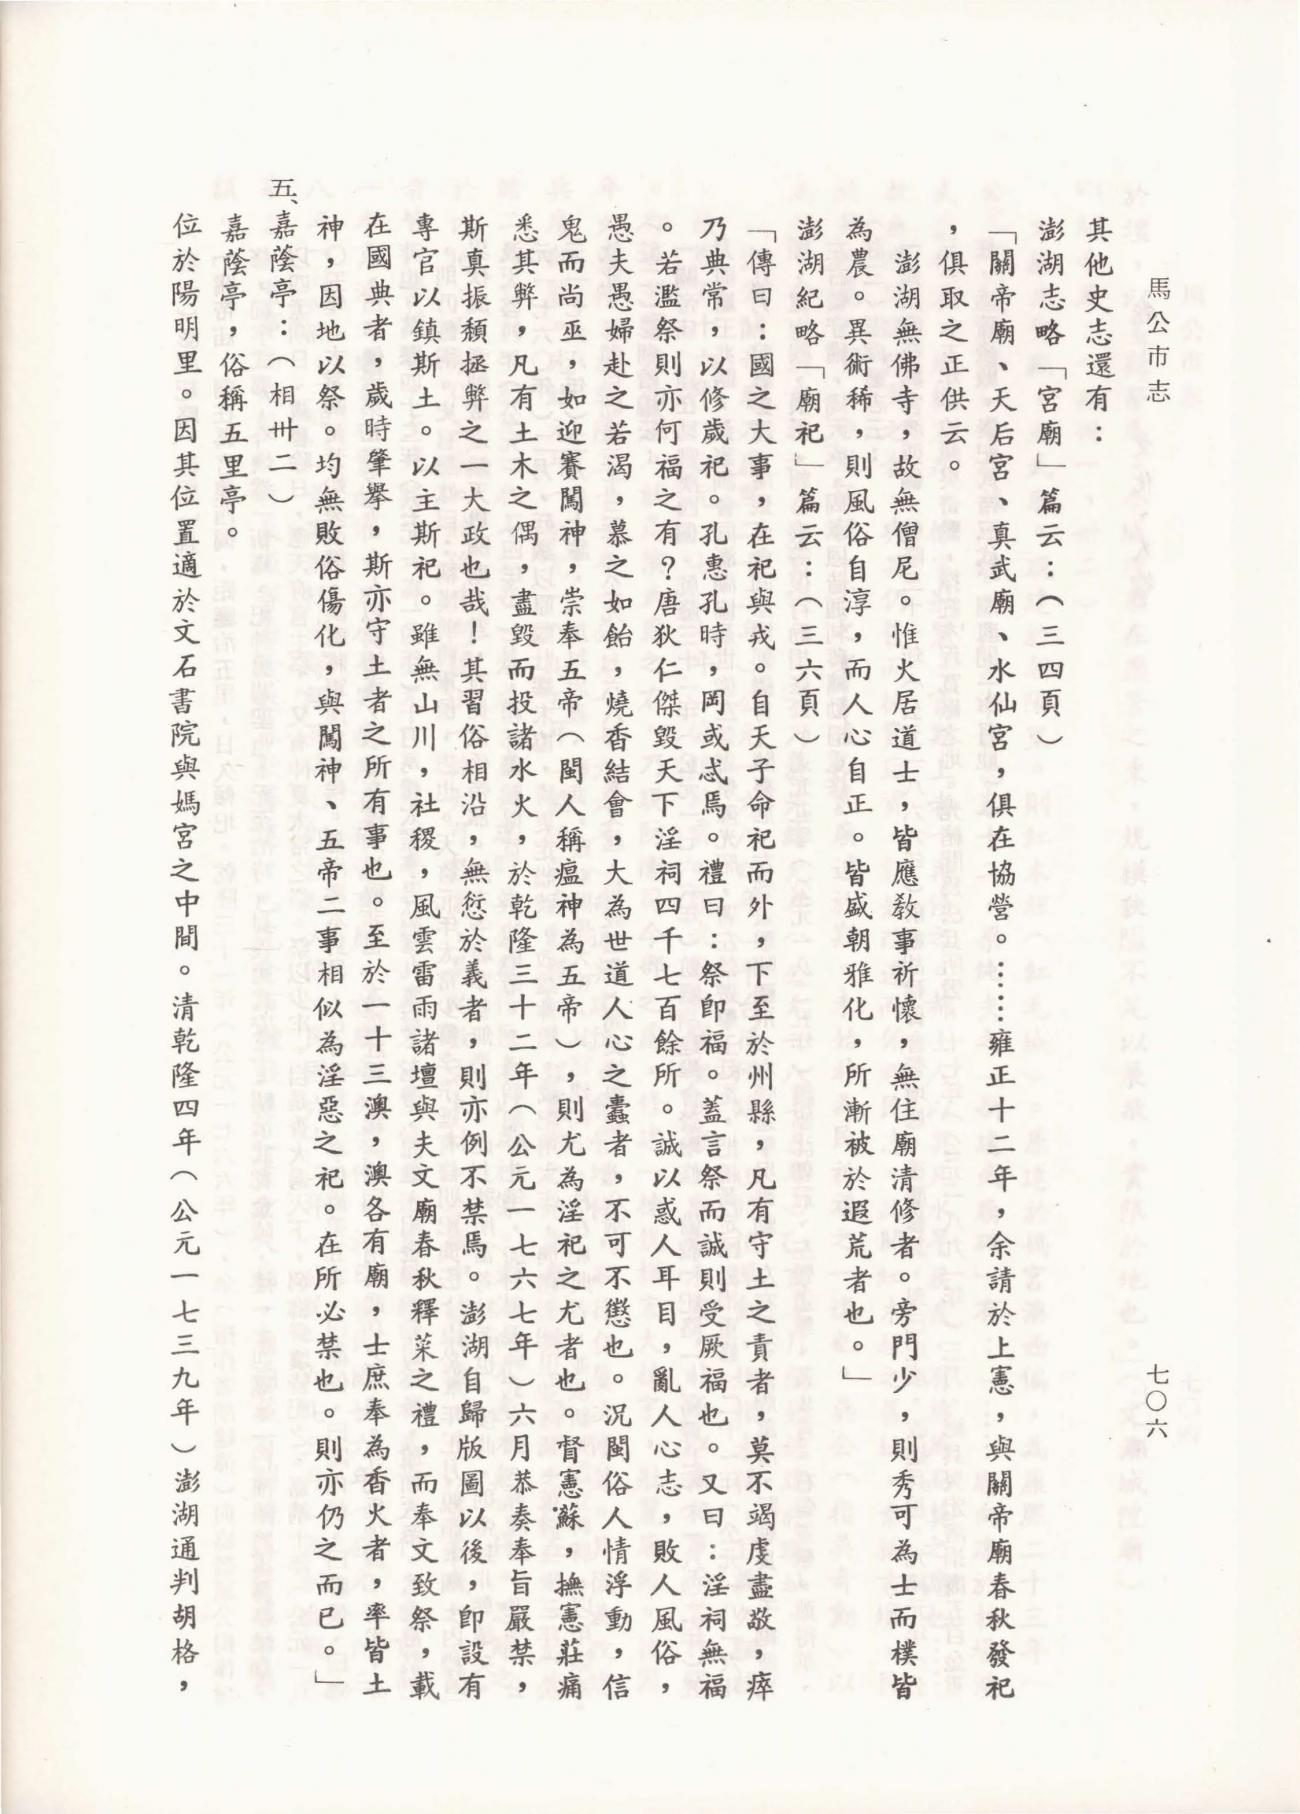 馬公市志
七〇六
其他史志還有：
澎湖志略「宮廟」篇云：（三四頁）
「關帝廟、天后宮、真武廟、水仙宮，俱在協營。……雍正十二年，余請於上憲，與關帝廟春秋發祀
，俱取之正供云。
澎湖無佛寺，故無僧尼。惟火居道士，皆應敎事祈懷，無住廟清修者。旁門少，則秀可為士而樸皆
為農。異術稀，則風俗自淳，而人心自正。皆盛朝雅化，所漸被於遐荒者也。」
澎湖紀略「廟祀」篇云：（三六頁）
「傳曰：國之大事，在祀與戎。自天子命祀而外，下至於州縣，凡有守土之責者，莫不竭虔盡敬，瘁
乃典常，以修歲祀。孔惠孔時，罔或忒焉。禮曰：祭卽福。蓋言祭而誠則受厥福也。又曰：淫祠無福
。若濫祭則亦何福之有？唐狄仁傑毀天下淫祠四千七百餘所。誠以惑人耳目，亂人心志，敗人風俗，
愚夫愚婦赴之若渴，慕之如飴，燒香結會，大為世道人心之蠹者，不可不懲也。況閩俗人情浮動，信
鬼而尚巫，如迎賽闖神，崇奉五帝（閩人稱瘟神為五帝），則尤為淫祀之尤者也。督憲蘇，撫憲莊痛
悉其弊，凡有土木之偶，盡毀而投諸水火，於乾隆三十二年（公元一七六七年）六月恭奏奉旨嚴禁，
斯真振頹拯弊之一大政也哉！其習俗相沿，無愆於義者，則亦例不禁焉。澎湖自歸版圖以後，卽設有
專官以鎮斯土。以主斯祀。雖無山川，社稷，風雲雷雨諸壇與夫文廟春秋釋菜之禮，而奉文致祭，載
在國典者，歲時肇舉，斯亦守土者之所有事也。至於一十三澳，澳各有廟，士庶奉為香火者，率皆土
神，因地以祭。均無敗俗傷化，與闖神、五帝二事相似為淫惡之祀。在所必禁也。則亦仍之而已。」
五、嘉蔭亭：（相卅二）
嘉蔭亭，俗稱五里亭。
位於陽明里。因其位置適於文石書院與媽宮之中間。清乾隆四年（公元一七三九年）澎湖通判胡格，